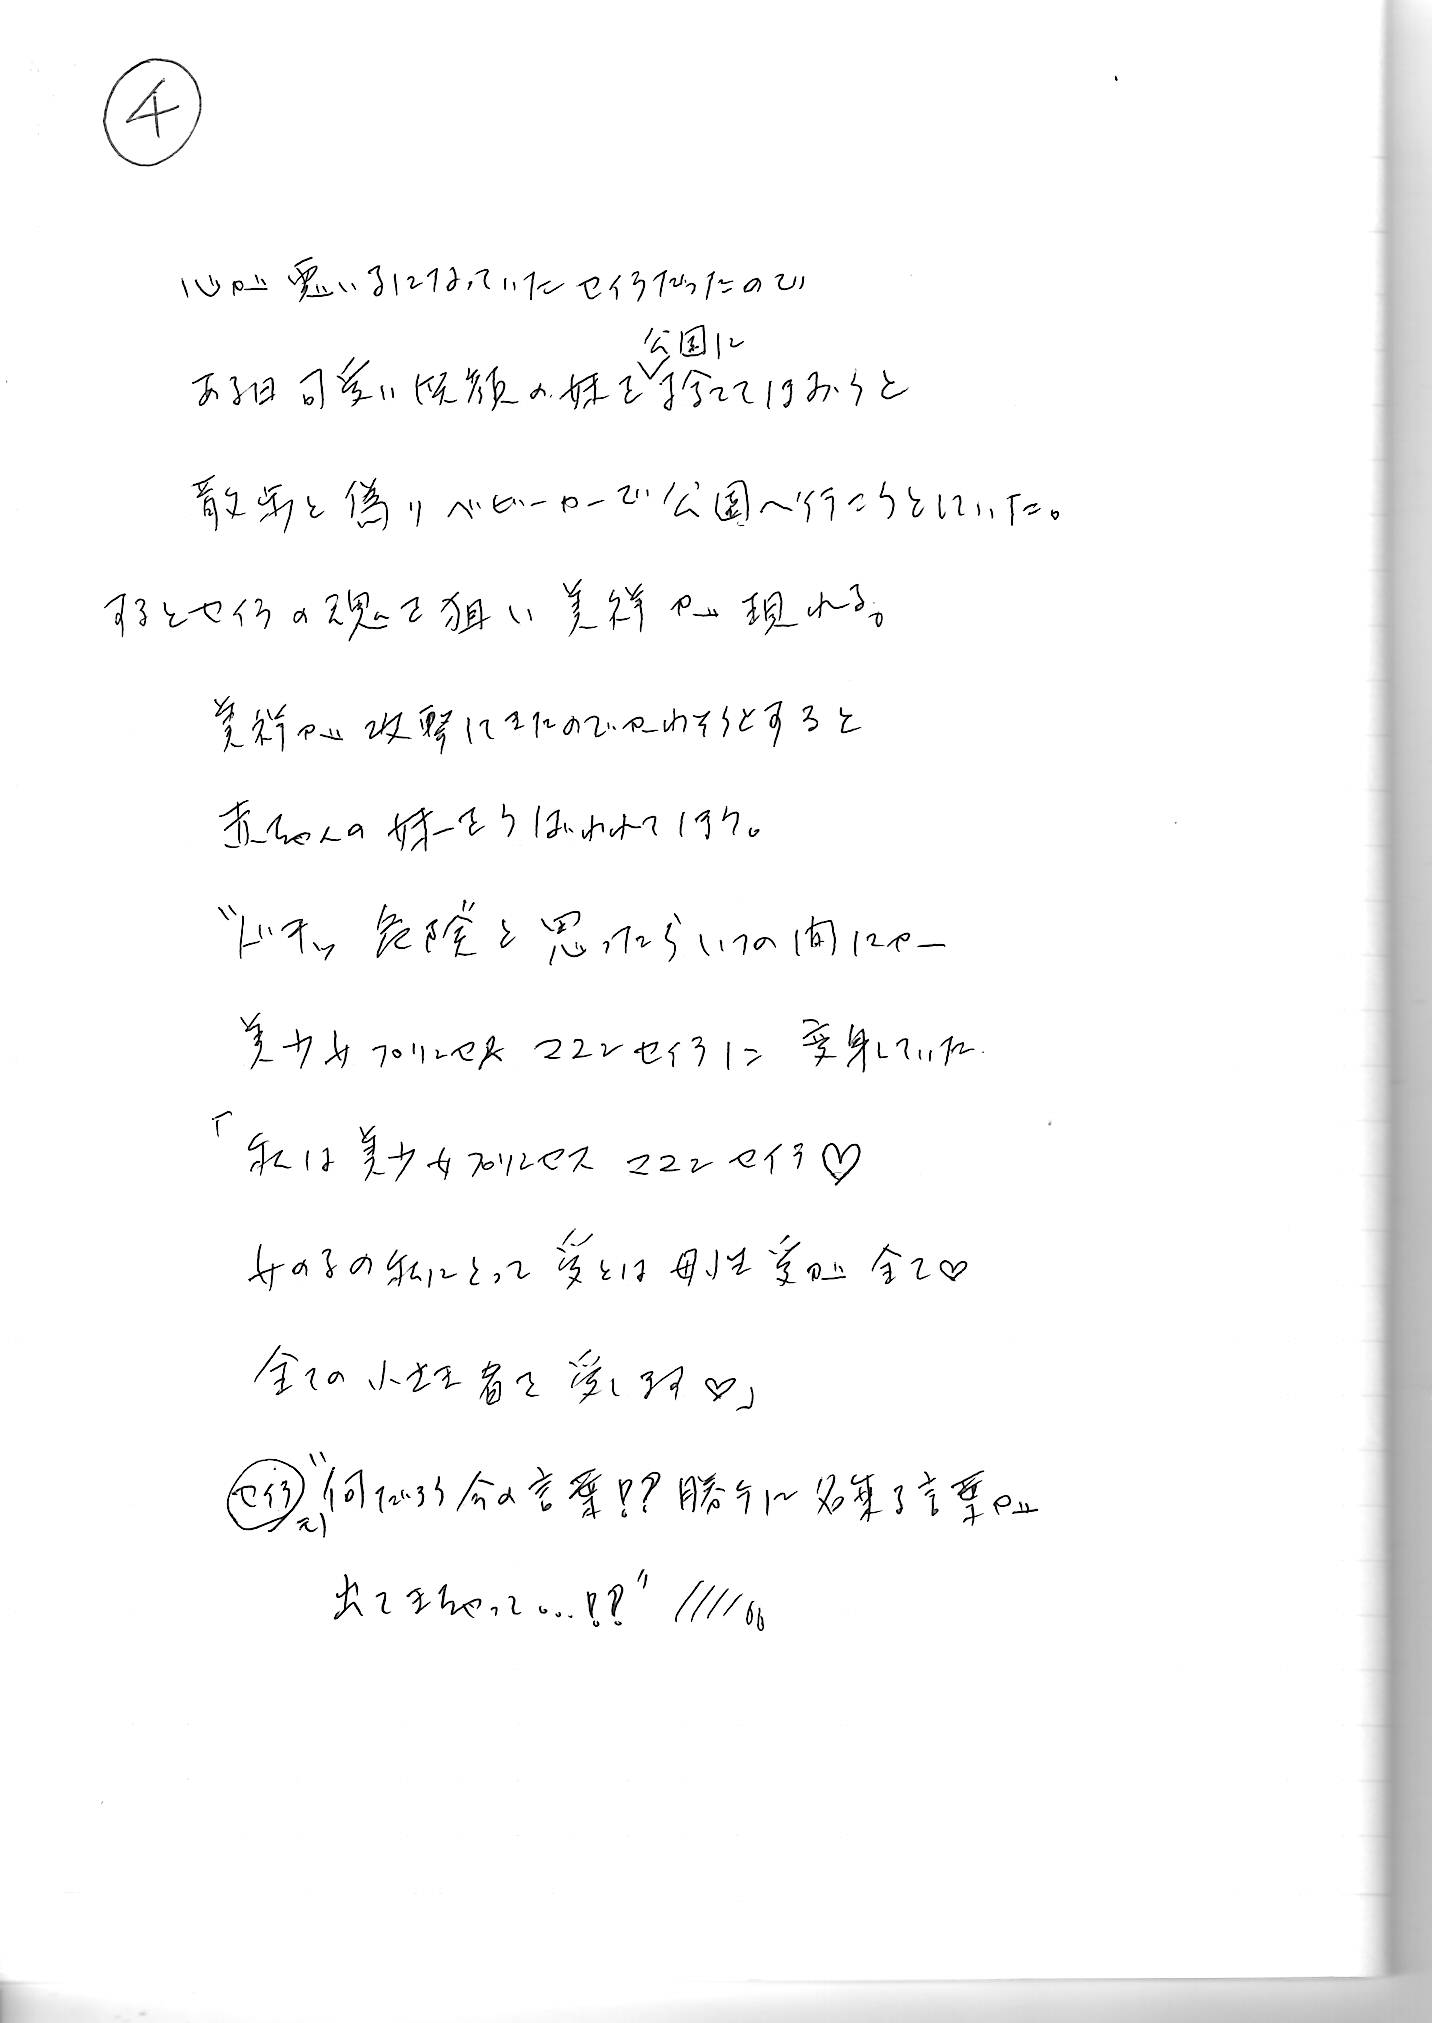 ④
心が悪い子になっていたセイラだったので
公園に
ある日可愛い笑顔の妹を捨ててしまおうと
散歩と偽りベビーカーで公園へ行こうとしていた。
するとセイラの魂を狙い美祥が現れる。
美祥が攻撃してきたのでかわそうとすると
赤ちゃんの妹をうばわれてしまう。
"ドキッ 危険"と思ったらいつの間にかー
美少女プリンセス ママンセイラに 変身していた
「私は美少女プリンセス ママンセイラ♡
女の子の私にとって愛とは母性愛が全て♡
全ての小生王者を愛します♡」
セイラ "何だろう今の言葉!? 勝手に名乗る言葉が
出てきちゃって…!?" /////